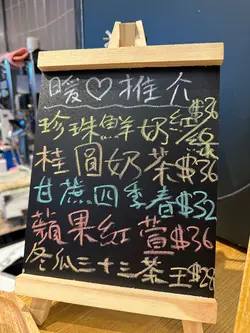 暖♡推介
珍珠鮮奶紅$36
桂圓奶茶$36
甘蔗四季春$32
蘋果紅萱$36
冬瓜三十三茶王$28